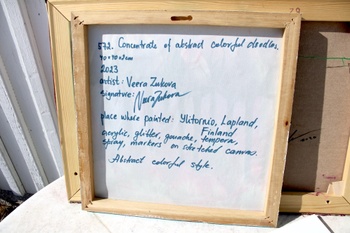 572. Concentrate of abstract colorful doodles.
40×40×2cm
2023
artist: Veera Zukova
signature: Veera Zukova
place where painted: Ylitornio, Lapland,
Finland
acrylic, glitter, gouache, tempera,
spray, markers on stretched canvas.
Abstract colorful style.